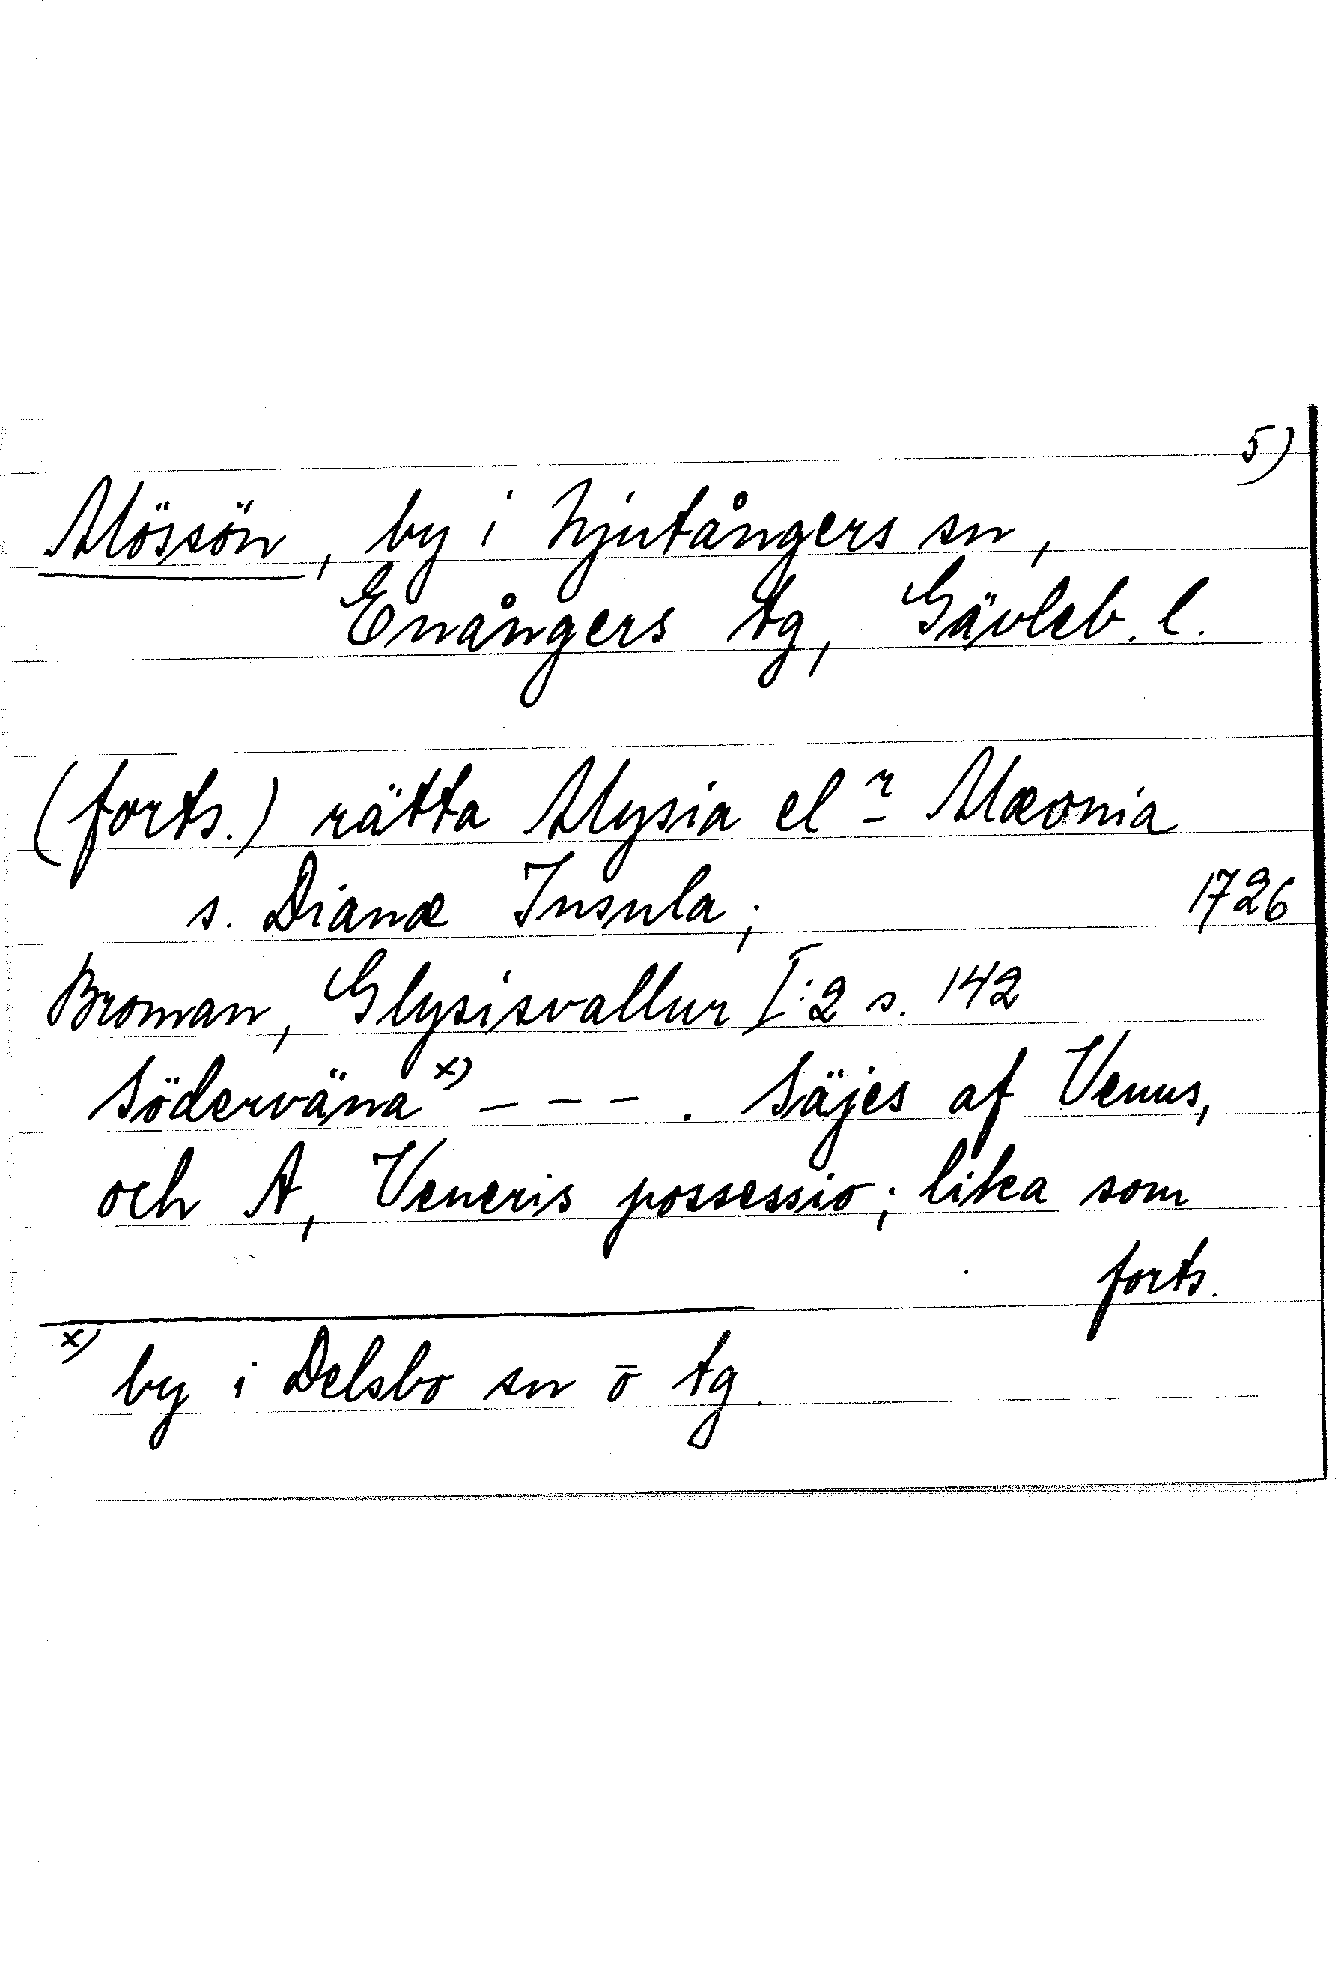 5)
Mössön, by i Njutångers sn,
Enångers tg, Gävleb. l.
(forts.) rätta Mysia el r Mæonia
s. Dianæ Insula; 1726
Broman, Glysisvallur I:2 s. 142
Söderväna x) - - - . Säjes af Venus,
och A, Veneris possessio; lika som
forts.
x) by i Delsbo sn o tg.